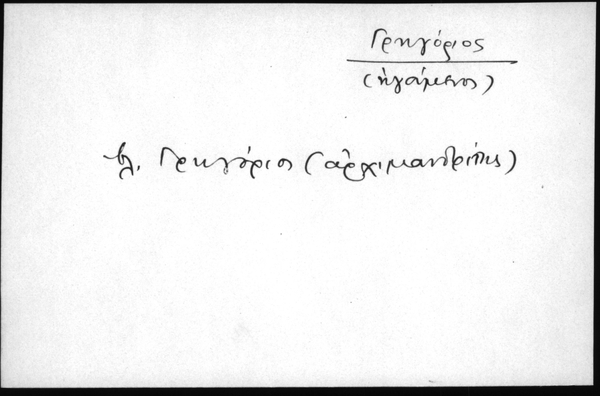 Γρηγόριος
(ἡγούμενος)
βλ. Γρηγόριος (ἀρχιμανδρίτης)